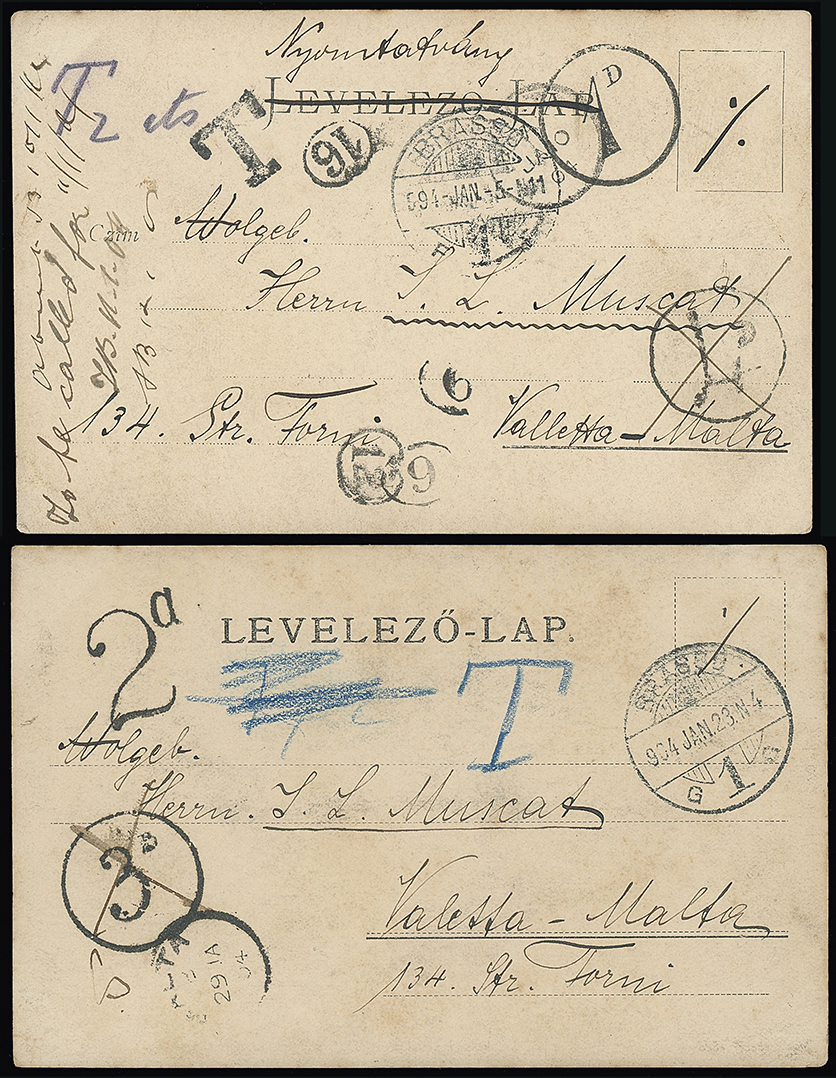 Nyomtatvány
LEVELEZŐ-LAP
T 2 cts
T
16
1D
BRASSÓ
904-JAN.-5-N11
1
Czim
Wolgeb.
Herrn I. L. Muscat
134. Str. Forni
Valletta-Malta
To be called for
6
6
2d
LEVELEZŐ-LAP.
T
BRASSÓ
904 JAN.23.N4
G 1 G
Wolgeb.
Herrn. I. L. Muscat
3D
Valetta-Malta
134. Str. Forni
MALTA
29 JA
04